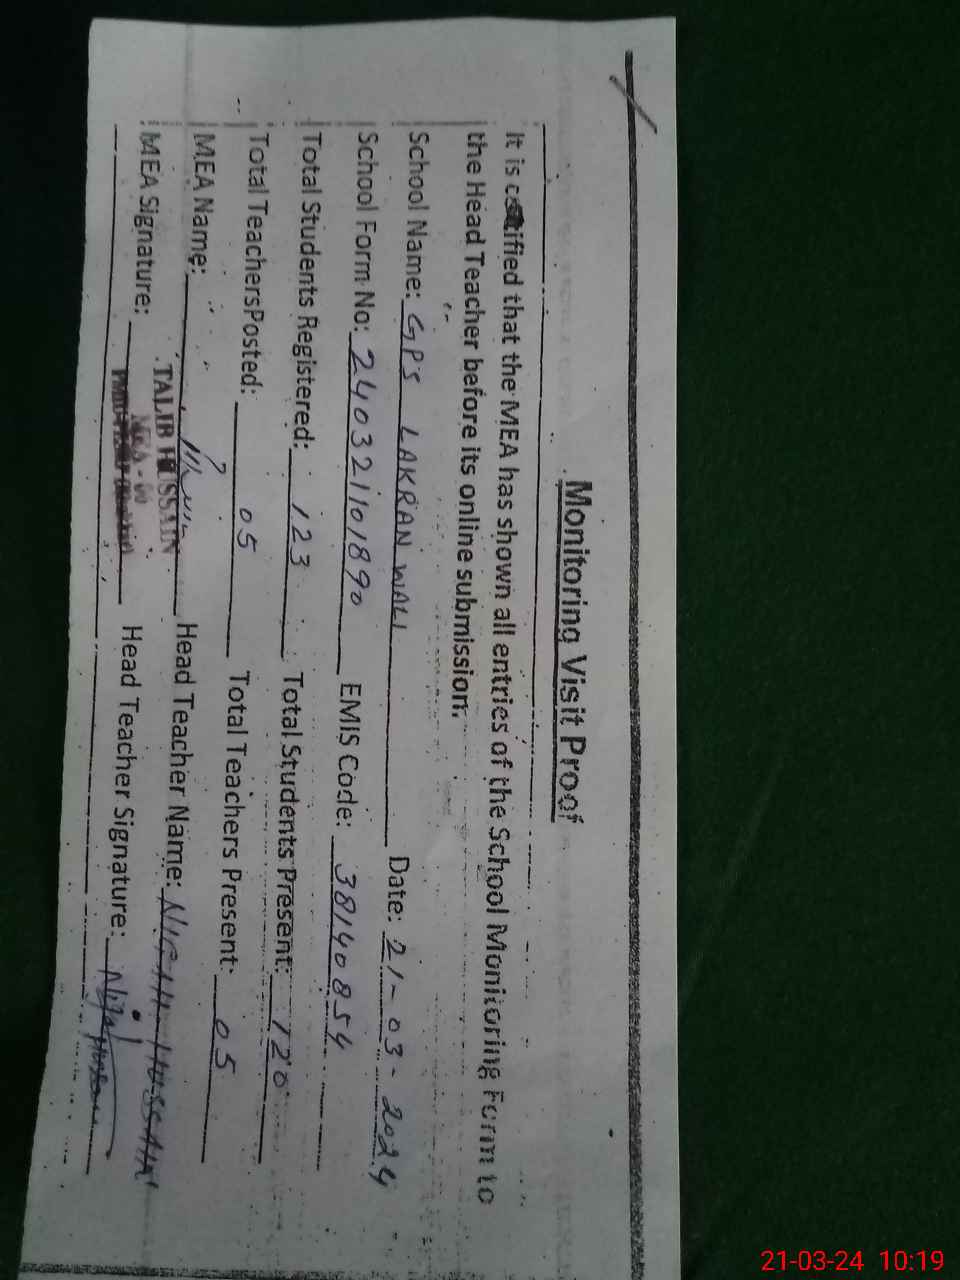 Monitoring Visit Proof
It is certified that the MEA has shown all entries of the School Monitoring Form to
the Head Teacher before its online submission.
School Name: GPS LAKRAN WALI Date: 21-03-2024
School Form No: 24032101890 EMIS Code: 38140854
Total Students Registered: 123 Total Students Present: 120
Total TeachersPosted: 05 Total Teachers Present: 05
MEA Name: Head Teacher Name: HUSSAIN
TALIB HUSSAIN
MEA Signature: Head Teacher Signature:
21-03-24 10:19